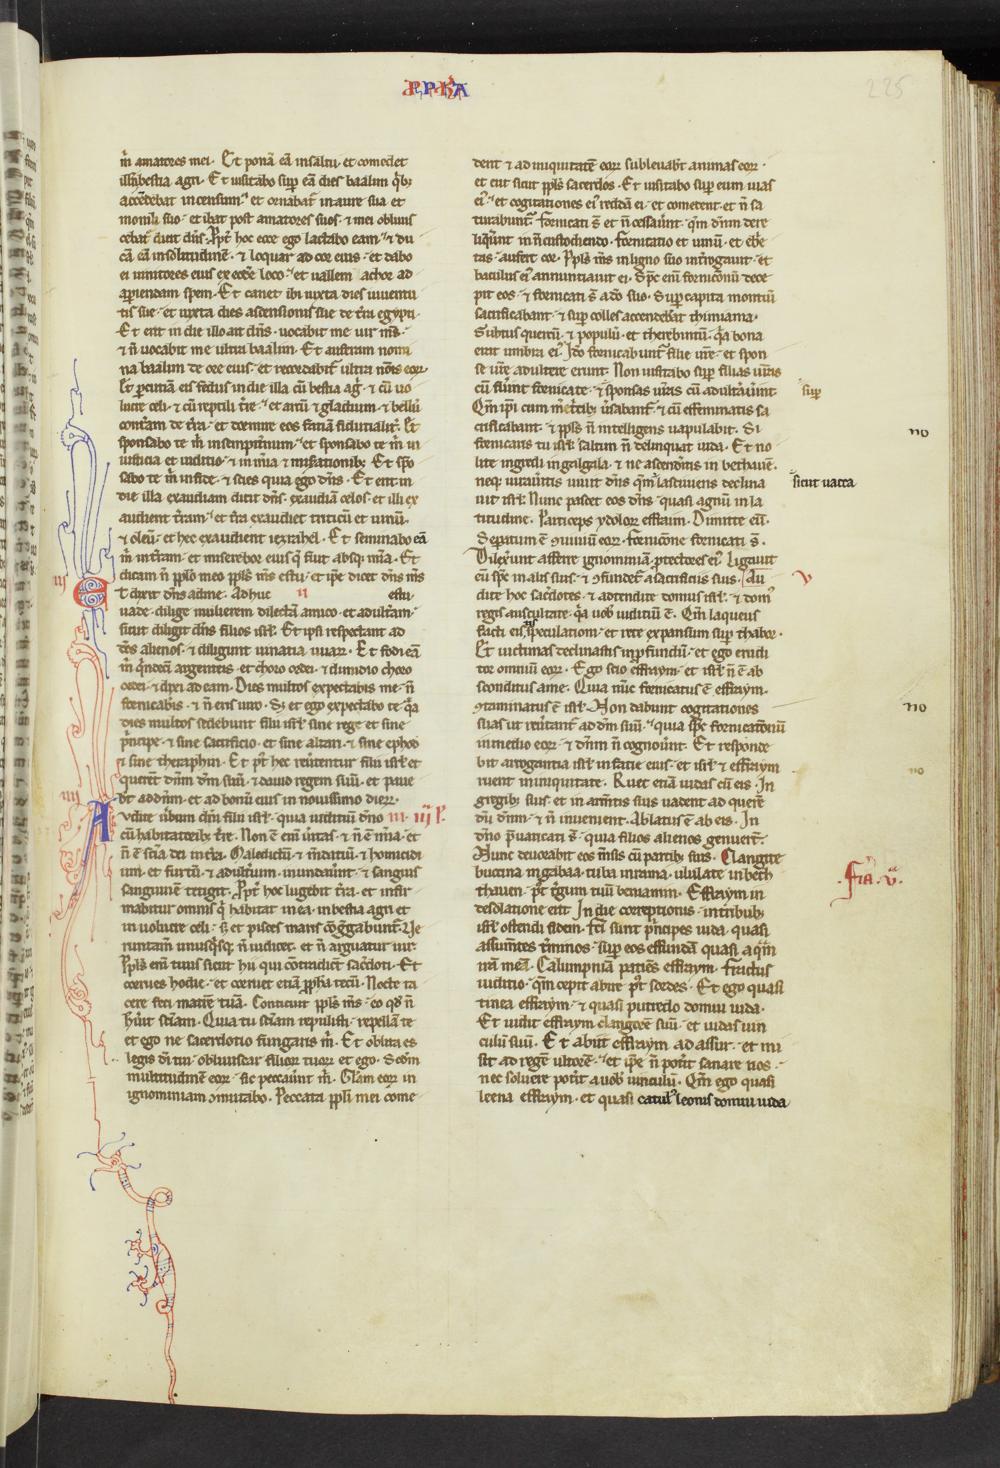 APRKA
225
m̄ amatores mei. Et ponā eā in saltū. et comedet
illā bestia agri. Et uisitabo sup eā dies baalim q̄b;
accēdebat incensum. et ornabat̄ inaure sua et
monili suo. et ibat post amatores suos. ⁊ mei obliuis
cebat̄ dicit dn̄s. Ppt̄ hoc ecce ego lactabo eam. ⁊ du
cā eā in solitudinē. ⁊ loquar ad cor eius. et dabo
ei uinitores eius ex eodē loco. et uallem achor ad
apiendam spem. Et canet ibi iuxta dies iuuentu
tis sue. et iuxta dies ascensionis sue de tr̄a egypti.
Et erit in die illo ait dn̄s. uocabit me uir ms̄.
⁊ n̄ uocabit me ultra baalim. Et auferam nomi
na baalim de ore eius. et recordabit̄ ultra nōis eoꝝ.
Et pcutiā eis fedus in die illa cū bestia aḡ. ⁊ cū uo
lucre celi. ⁊ cū reptili tr̄e. et arcū ⁊ gladium. ⁊ bellū
conteram de tr̄a. et dormire eos faciā fiducialit̄. Et
sponsabo te m̄ in sempit̄num. et sponsabo te m̄ in
iusticia et iudicio. ⁊ in mīa ⁊ miserationib;. Et spō
sabo te m̄ in fide. ⁊ scies quia ego dn̄s. Et erit in
die illa exaudiam dicit dn̄s. exaudiā celos. et illi ex
audient tr̄am. et tr̄a exaudiet triticū et uinū.
⁊ oleū. et hec exaudient iezrahel. Et seminabo eā
m̄ in tr̄am. et miserebor eius q̄ fuit absq; mīa. Et
dicam n̄ pplo meo ppl̄s ms̄ es tu. et ipe dicet dn̄s ms̄
iii E
t dixit dn̄s ad me. Adhuc ii es tu.
uade. dilige mulierem dilectā amico. et adult̄am.
sicut diligit dn̄s filios isrl̄. Et ipsi respectant ad
dōs alienos. ⁊ diligunt uinatia uuaꝝ. Et fodi eā
m̄ q̄ndecī argenteis. et choro ordei. ⁊ dimidio choro
ordei. ⁊ dixi ad eam. Dies multos expectabis me. n̄
fornicabis. ⁊ n̄ eris uiro. S; et ego expectabo te. q̄a
dies multos sedebunt filii isrl̄ sine rege et sine
p̄ncipe. ⁊ sine sacrificio. et sine altari. ⁊ sine ephod
⁊ sine theraphin. Et p̄t hec reu̇tentur filii isrl̄ et
querēt dn̄m dm̄ suū. ⁊ dauid regem suū. et paue
bt̄ ad dn̄m. et ad bonū eius in nouissimo dieꝝ.
iiii A
udite u̇bum dn̄i filii isrl̄. quia iudiciū dn̄o iii. iiij P.
cū habitatorib; tr̄e. Non ē eni ueritas. ⁊ n̄ ē mīa. et
n̄ ē sc̄ia dei in tr̄a. Maledictū ⁊ m̄datiū. ⁊ homicidi
um. et furtū. ⁊ adult̄ium inundauer̄t. ⁊ sanguis
sanguinē tetigit. Ppt̄ hoc lugebit tr̄a. et infir
mabitur omnis q̄ habitat in ea. in bestia agri et
in uolucre celi. s; et pisces maris cōḡgabunt̄. Ve
runtam̄ unusq̄sq; n̄ iudicet. et n̄ arguatur uir.
Ppl̄s eni tuus sicut hii qui cōtradic̄t sac̄doti. Et
corrues hodie. et corruet etiā ppha tecū. Nocte ta
cere feci matrē tuā. Conticuit ppl̄s ms̄. eo qd̄ n̄
hu̇it sc̄iam. Quia tu sc̄iam repulisti. repellā te
et ego ne sacerdotio fungaris m̄. Et oblita es
legis di tui. obliuiscar filioꝝ tuoꝝ et ego. Scdm
multitudinē eoꝝ. sic peccau̇t m̄. Gl̄am eoꝝ in
ignominiam ꝯmutabo. Peccata ppli mei come
dent ⁊ ad iniquitatē eoꝝ subleuabt̄ animas eoꝝ.
et erit sicut ppl̄s sacerdos. Et uisitabo sup eum uias
ei᷒. et cogitationes ei᷒ reddā ei. et comedent. et n̄ sa
turabunt̄. fornicati s̄ et n̄ cessau̇t. qm̄ dn̄m dere
liq̄runt in n̄ custodiendo. fornicatio et uinū. et eb̄e
tas. aufert cor. Ppl̄s ms̄ in ligno suo int̄rogauit. et
baculus ei᷒ annunciauit ei. Sp̄c eni fornic̄onū dece
pit eos. ⁊ fornicati s̄ a dō suo. Sup capita montiū
sacrificabant. ⁊ sup colles accendebāt thimiama.
Subtus quercū. ⁊ populū. et therebintū. q̄a bona
erat umbra ei᷒. Iō fornicabunt̄ filie ur̄e. et spon
se ur̄e adultere erunt. Non uisitabo sup filias ur̄as
cū fuerint fornicate. ⁊ sponsas ur̄as cū adultau̇int. sup
Qm̄ ipi cum meretcib; u̇sabant̄. ⁊ cū effeminatis sa
crificabant. ⁊ ppl̄s n̄ intelligens uapulabit. Si
fornicaris tu isrl̄. saltim n̄ delinquat iuda. Et no no
lite ingredi in galgala. ⁊ ne ascend̄itis in bethauē.
neq; iurau̇itis uiuit dn̄s. qm̄ lasciuiens declina sicut uacca
uit isrl̄. Nunc pascet eos dn̄s. quasi agnū in la
titudine. Particeps ydoloꝝ effraim. Dimitte eū.
Seperatum ē ꝯuiuiū eoꝝ. fornic̄one fornicati s̄.
Dilexunt afferre ignominiā ptectores ei᷒. Ligauit
cū sp̄c in alis suis. ⁊ ꝯfundent̄ a sacrificiis suis. Au v
dite hoc sac̄dotes. ⁊ attendite domus isrl̄. ⁊ dom᷒
regis auscultate. q̄a uob iudiciū ē. Qm̄ laqueus
facti estis speculationi. et rete expansum sup thabor.
Et uictimas declinastis in pfundū. et ego erudi
tor omniū eoꝝ. Ego scio effraym. et isrl̄ n̄ ē ab
sconditus a me. Quia nūc fornicatus ē effraym.
ꝯtaminatus ē isrl̄. Non dabunt cogitationes no
suas ut reu̇tant̄ ad dm̄ suū. quia sp̄c fornicationū
in medio eoꝝ. ⁊ dn̄m n̄ cognou̇t. Et responde
bit arrogantia isrl̄ in facie eius. et isrl̄ ⁊ effraym no
ruent in iniquitate. Ruet etiā iudas cū eis. In
gregib; suis. et in armtis suis uadent ad querē
dū dn̄m. ⁊ n̄ inuenient. Ablatus ē ab eis. In
dn̄o p̄uaricati s̄. quia filios alienos genuer̄t.
Nunc deuorabit eos m̄sis cū partib; suis. Clangite
buccina in gabaa. tuba in rama. ululate in beth
thauen. p̄t t̄gum tuū beniamin. Effraym in fr̄ia. va.
desolatione erit. In die correptionis. in tribub;
isrl̄ ostendi fidem. fc̄i sunt p̄ncipes iuda. quasi
assum̄tes t̄minos. sup eos effundā quasi aq̄m
irā meā. Calumpniā patiēs effraym. fractus
iudicio. qm̄ cepit abire p̄t sordes. Et ego quasi
tinea effraym. ⁊ quasi putredo domui iuda.
Et uidit effraym clangorē suū. et iudas uin
culū suū. Et abiit effraym ad assur. et mi
sit ad regē ultorē. et ipe n̄ pot̄it sanare uos.
nec soluere pot̄it a uob uinculū. Qm̄ ego quasi
leena effraym. et quasi catul᷒ leonis domui iuda